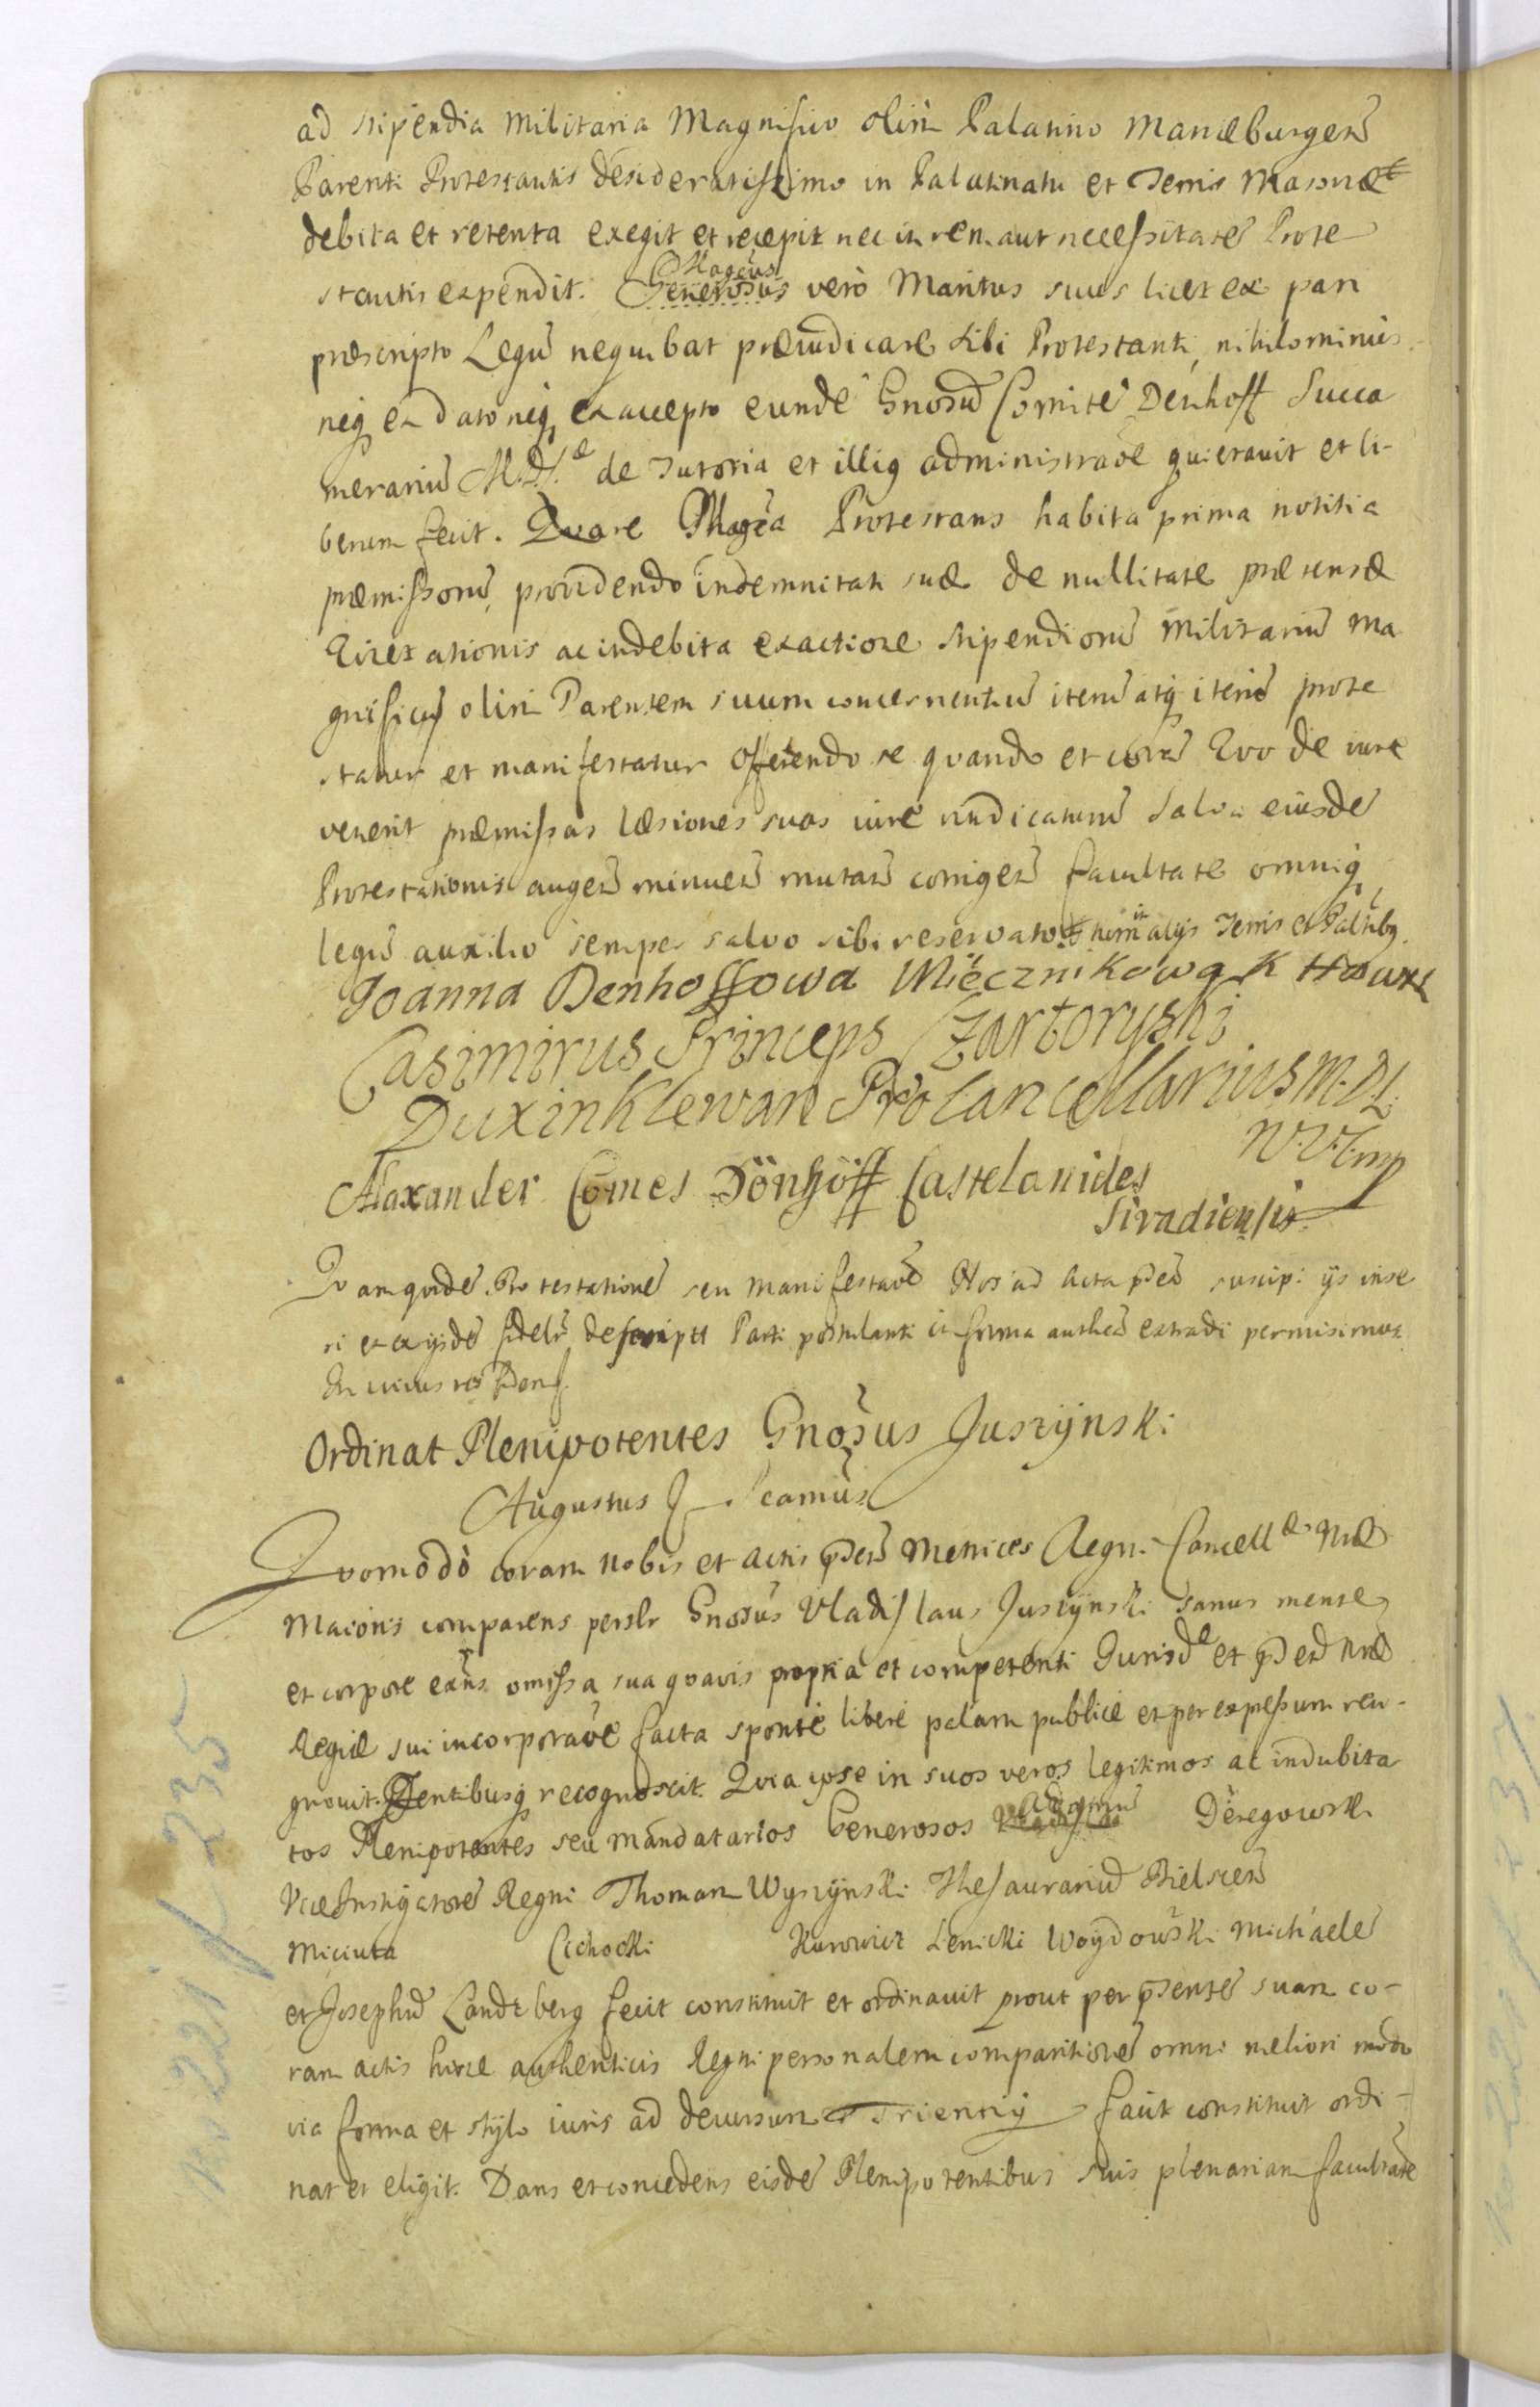 ad stipendia Militaria Magnifico olim Palatino Mariæburgeñ
Parenti Protestantis desideratissimo in Palatinatu et Terris Masoviæ
debita et retenta exegit et recepit nec in rem aut necessitatē Prote
stantis expendit. Generosus Magcus vero Maritus suus licet ex pari
præscripto Legū nequibat præiudicare sibi Protestanti, nihilominus
neq ex dato neq ex accepto eundē Gnosū Comitē Denhoff Succa
merariū M.D.L. de Tutoria et illiq administraõe quietavit et li-
berum fecit. Quare Magca Protestans habita prima notitia
præmissorū, providendo indemnitati suæ de nullitate prætensæ
Quietationis ac indebita exactione stipendiorū Militariū Ma
gnificū olim Parentem suum concernentiū iterū atq iterū prote
statur et manifestatur offerendo se quando et corā Quo de iure
venerit præmissas læsiones suas iure vindicaturū Salva eiusdē
Protestationis augeñ minueñ mutañ corrigeñ facultate omniq
legū auxilio semper salvo sibi reservato tum in alijs Terris et Palñbq.
Joanna Denhoffowa Miecznikowa K
Casimirus Princeps Czartoryski
Dux in Klewan ProCancellarius M.D.L.
mp
Alaxander Comes Dönhöff Castelanides
Siradiensis
Quam quidē Protestationē seu Manifestaõē Nos ad Acta pñtā suscipi ijs inse
ri et ex ijsdē fidelr descripti Parti postulanti in forma autheñ extradi permisimus.
In cuius rei
Ordinat Plenipotentes Gnosus Juszÿnski
Augustus
Quomodo coram Nobis et Actis pñtibus Metrices Regni Cancellæ Nræ
Maioris comparens persolr Gnosus Vladislaus Juszÿnski sanus mente
et corpore exñs omissa sua quavis propria et competenti Jurisdē et pñti Nræ
Regiæ sui incorporaõē facta sponte libere palam publice et per expressum reco-
gnovit. Pñtentibusq recognoscit. Quia ipse in suos veros legitimos ac indubita
tos Plenipotentes seu Mandatarios Generosos Deregowski
ViceInstigatorē Regni Thomam Wyszÿnski Thesaurariū Bielsceñ
Miciuta Cichocki Kurowicz Lenicki Woÿdowski Michaelē
et Josephū Landtberg fecit constituit et ordinavit prout per pñtentē suam co-
ram actis hisce authenticis Regni personalem comparitionē omni meliori modo
via forma et stÿlo iuris ad decursum Triennÿ facit constituit ordi-
nat et eligit. Dans et concedens eisdē Plenipotentibus suis plenariam facultatē